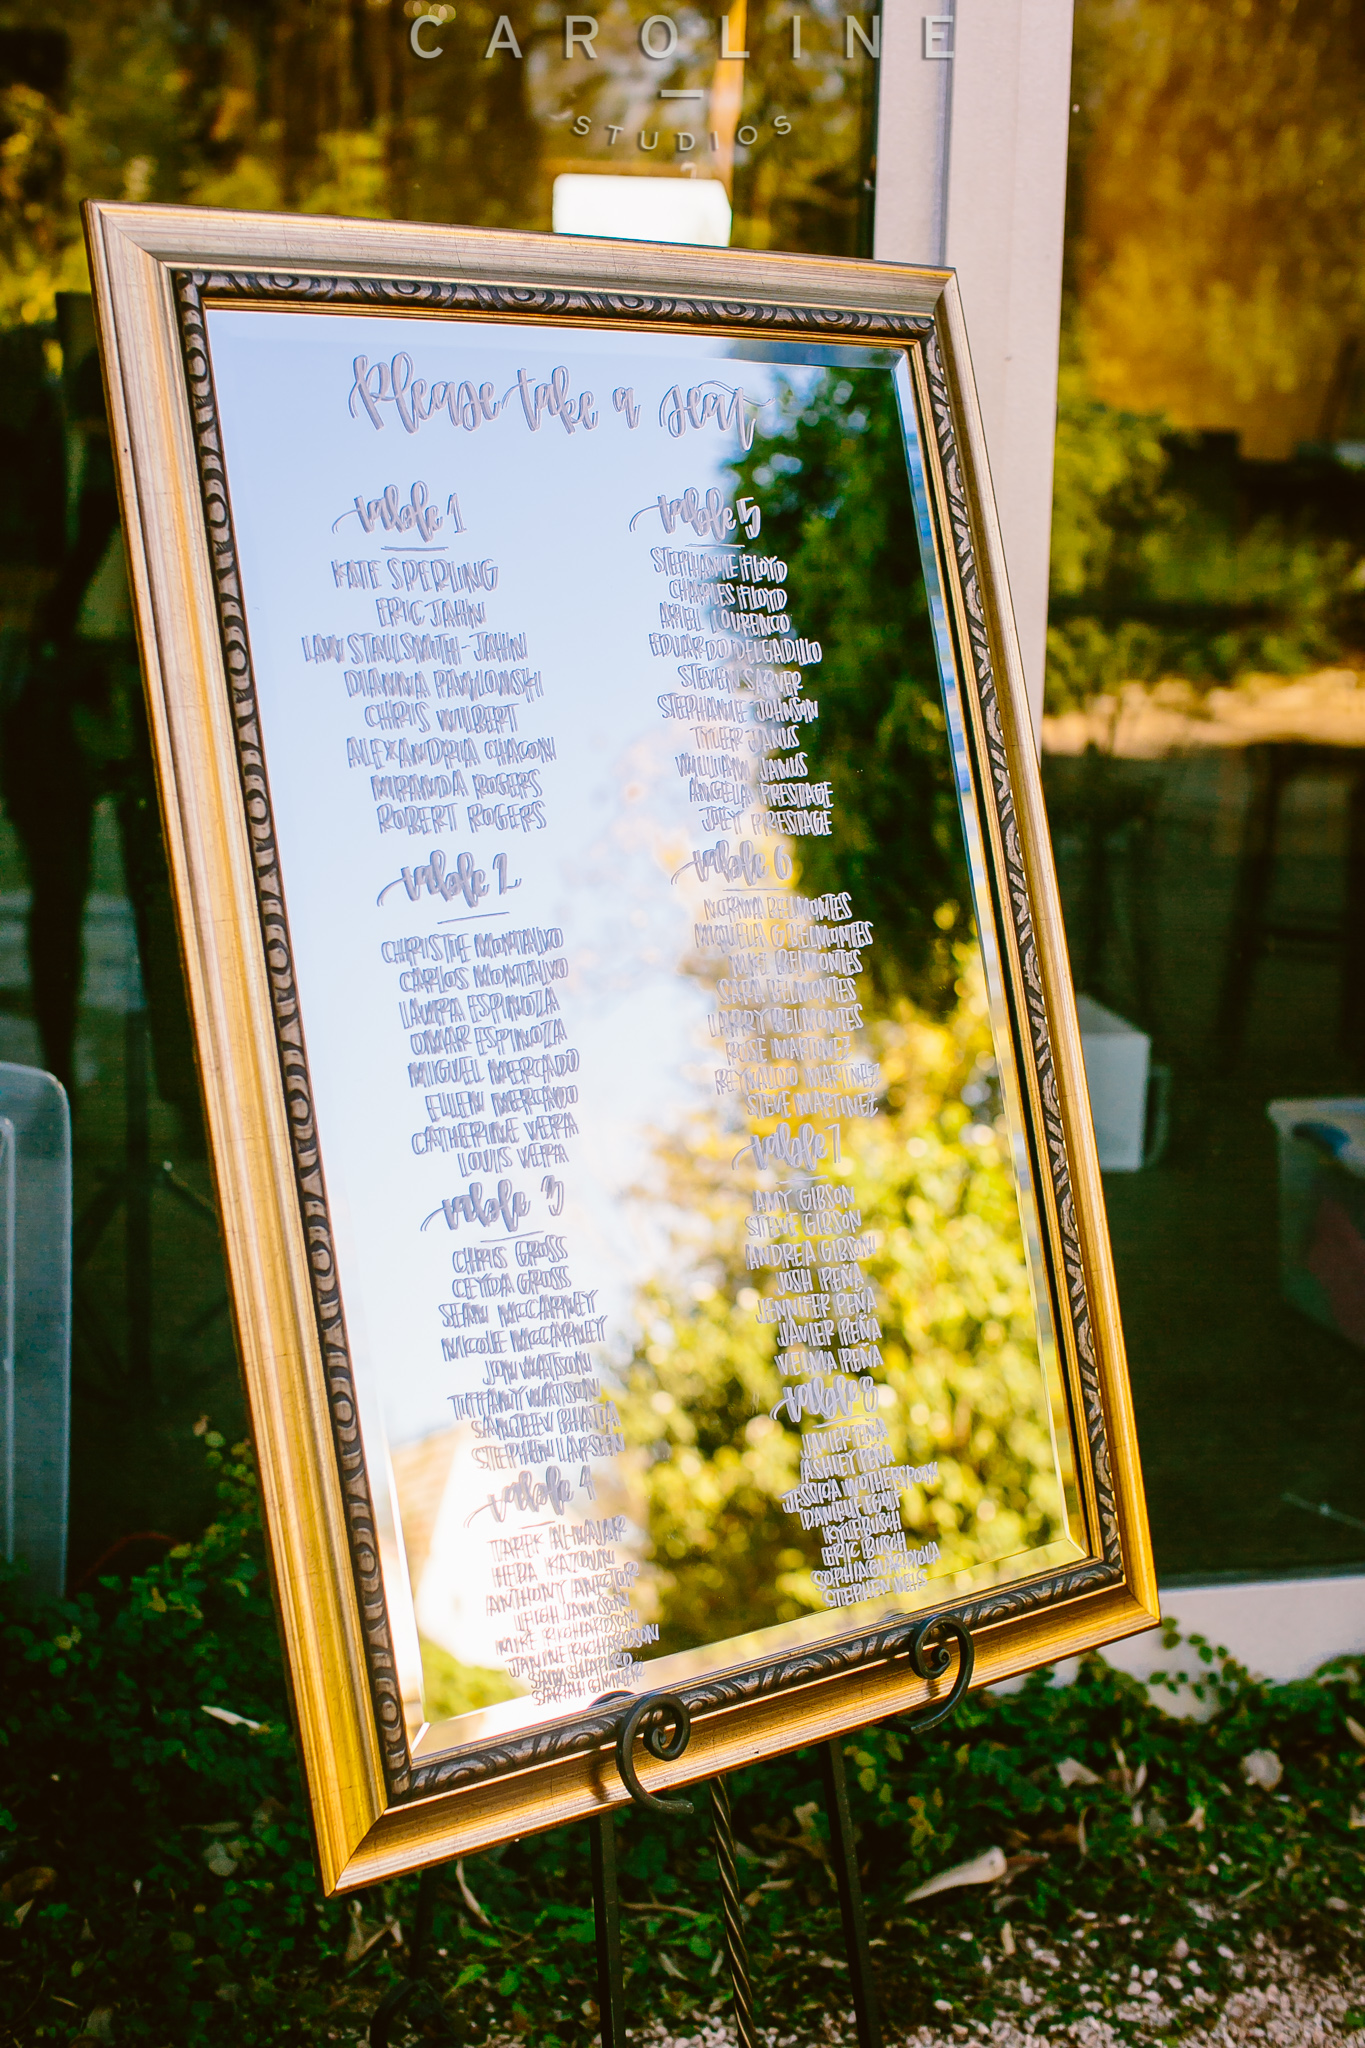 CAROLINE
STUDIOS
Please take a seat
table 1
KATE SPERLING
ERIC JAHN
STALLSMITH-JAHN
DIANNA PAWLOWSKI
CHRIS WILBERT
ALEXANDRIA CHACON
MIRANDA ROGERS
ROBERT ROGERS
table 2
CHRISTIE MONTALVO
CARLOS MONTALVO
LAURA ESPINOZA
OMAR ESPINOZA
MIGUEL MERCADO
ELLEN MERCADO
CATHERINE VERA
LOUIS VERA
table 3
CHRIS GROSS
CEYDA GROSS
SEAN McCARNEY
NICOLE McCARNEY
JON WATSON
TIFFANY WATSON
SANJEEV BHATIA
STEPHEN LARSEN
table 4
TAREK
HEBA
ANTHONY
LEIGH JANSSON
MIKE RICHARDSON
JANINE RICHARDSON
SHAPIRO
SARAH
table 5
STEPHANIE FLOYD
CHARLES FLOYD
ARIEL LOURENCO
EDUARDO DELGADILLO
STEVEN SARVER
STEPHANIE JOHNSON
TYLER JANUS
WILLIAM JANUS
ANGELA PRESTAGE
JOEY PRESTAGE
table 6
NORMA BELMONTES
MIQUELA G BELMONTES
MIKE BELMONTES
SARA BELMONTES
LARRY BELMONTES
ROSE MARTINEZ
REYNALDO MARTINEZ
STEVE MARTINEZ
table 7
AMY GIBSON
STEVE GIBSON
ANDREA GIBSON
JOSH PEÑA
JENNIFER PEÑA
JAVIER PEÑA
VELMA PEÑA
table 8
JAVIER PEÑA
ASHLEY PEÑA
JESSICA WOTHERSPOON
DANIELLE
KYLE BUSCH
ERIC BUSCH
SOPHIA GUARDIOLA
STEPHEN WEIS